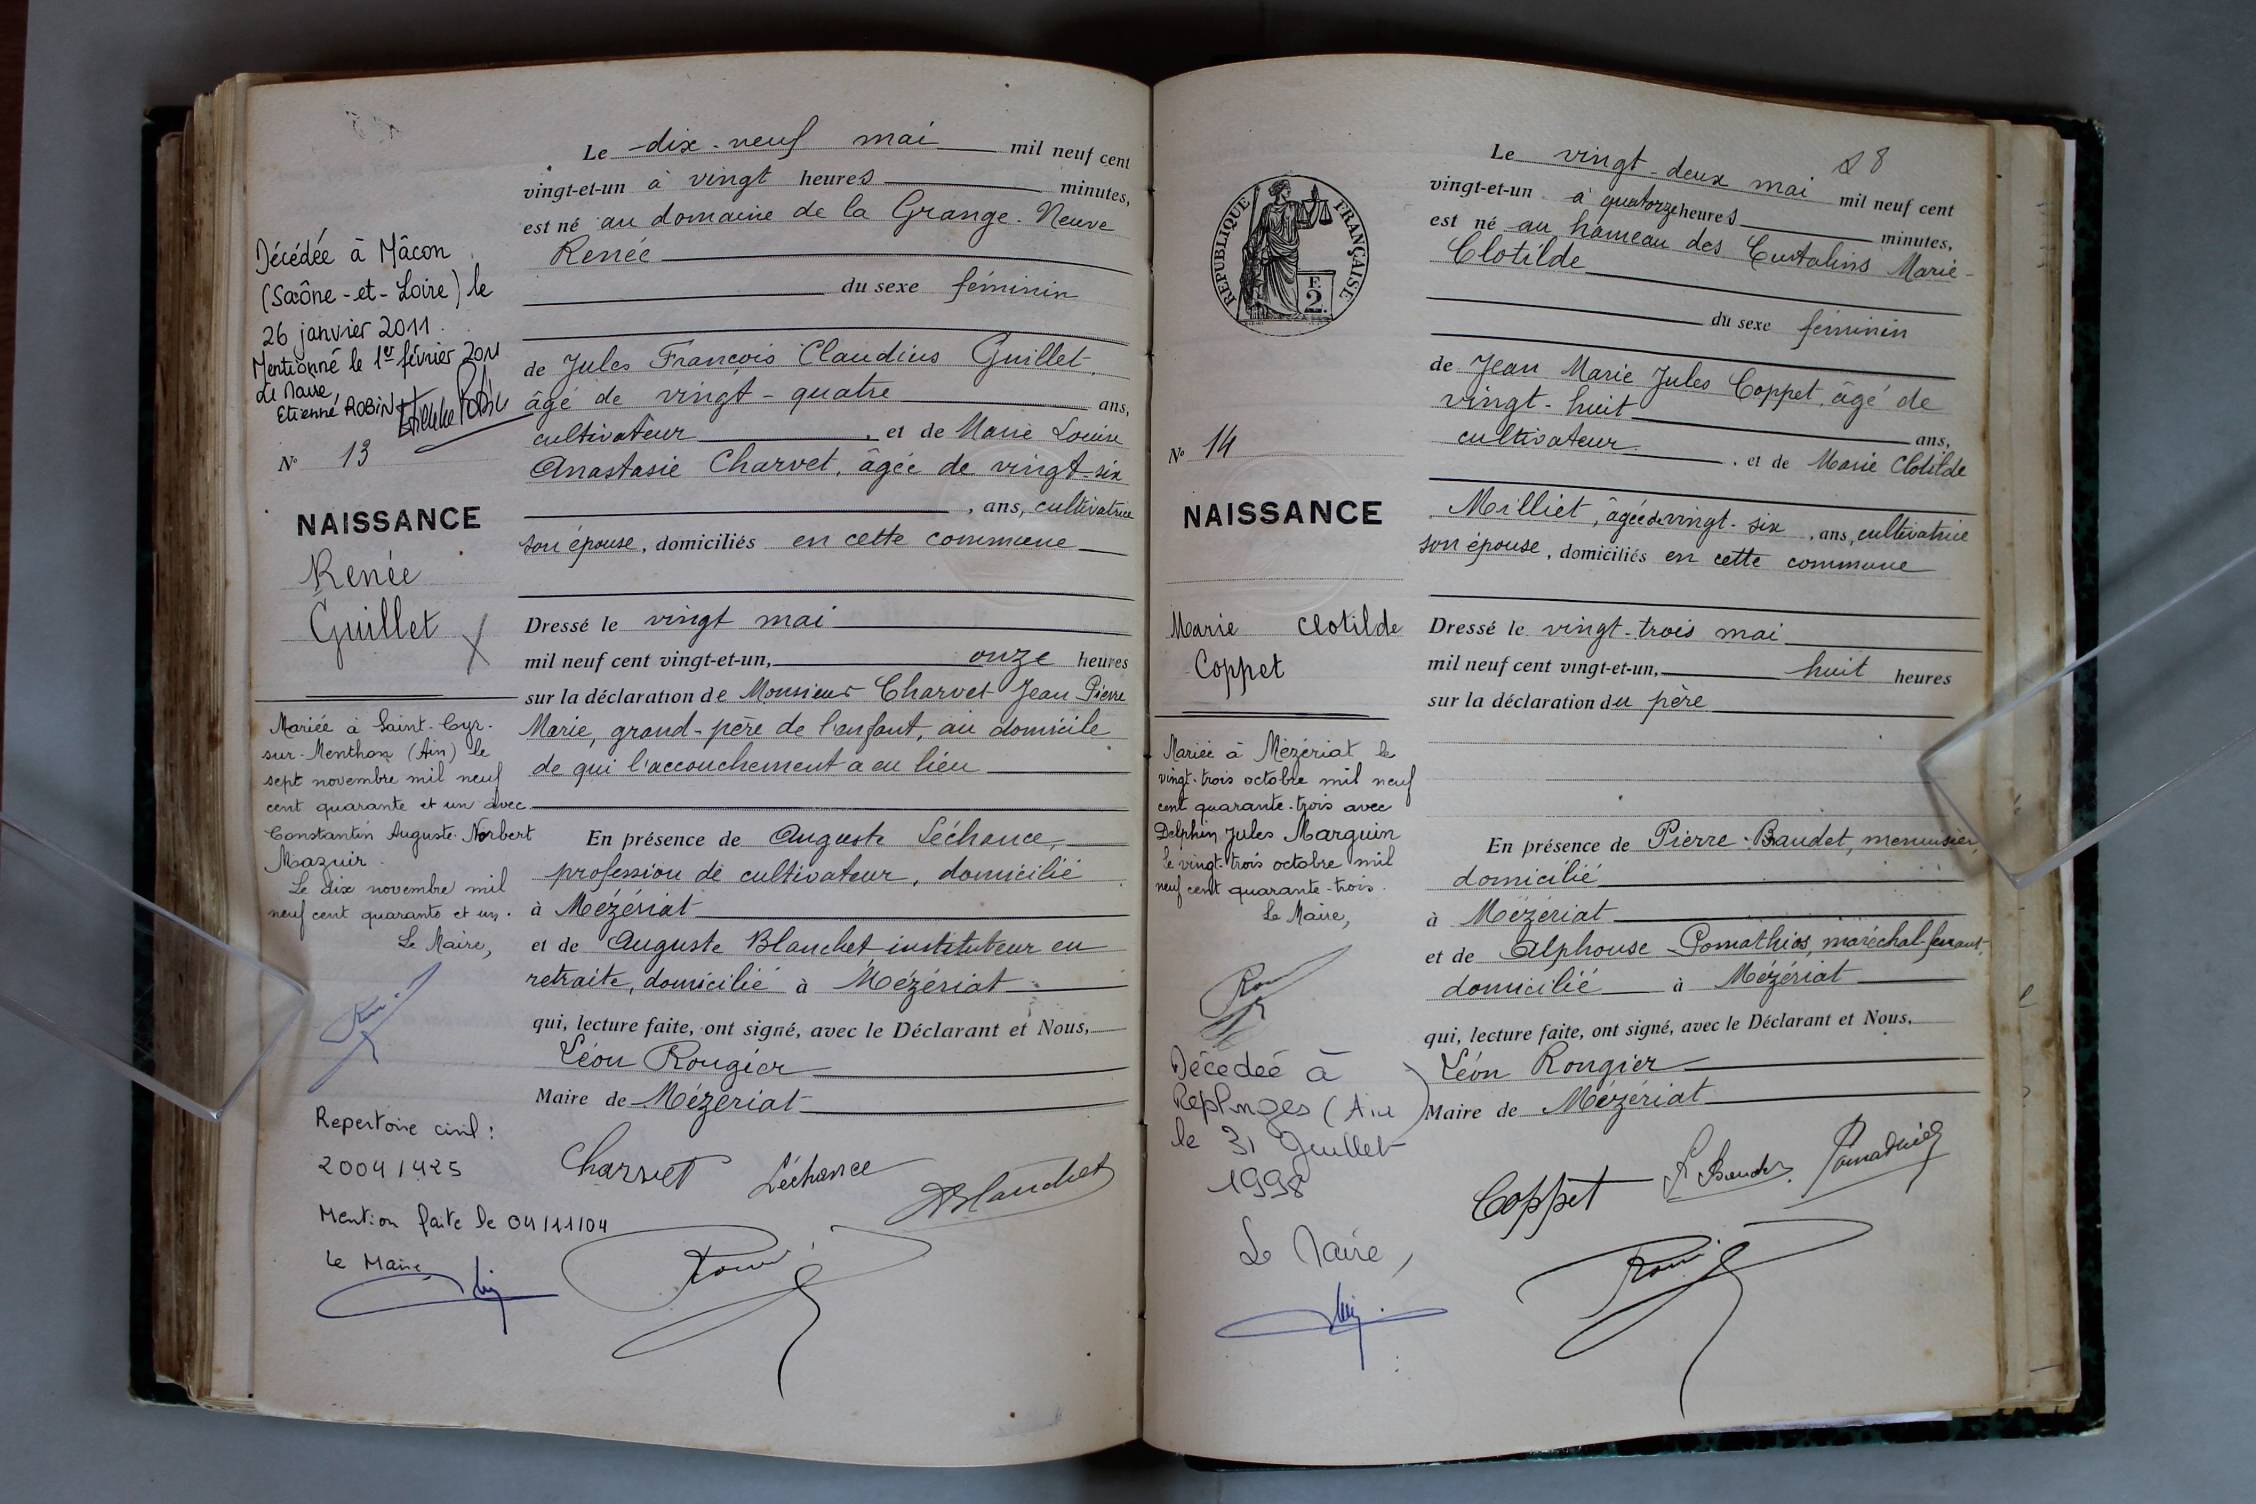 Décédée à Mâcon
(Saône-et-Loire) le
26 janvier 2011.
Mentionné le 1er février 2011
Le Maire
Etienne ROBIN
N° 13
NAISSANCE
Renée
Guillet
Mariée à Saint-Cyr-
sur-Menthon (Ain) le
sept novembre mil neuf
cent quarante et un avec
Constantin Auguste Norbert
Mazuir.
Le dix novembre mil
neuf cent quarante et un.
Le Maire,
Repertoire civil :
2004/425
Mention faite le 04/11/04
Le Maire
Le dix-neuf mai mil neuf cent
vingt-et-un à vingt heures minutes,
est né au domaine de la Grange-Neuve
Renée
du sexe féminin
de Jules François Claudius Guillet,
âgé de vingt-quatre ans,
cultivateur, et de Marie Louise
Anastasie Charvet, âgée de vingt-six
, ans, cultivatrice
son épouse, domiciliés en cette commune
Dressé le vingt mai
mil neuf cent vingt-et-un, onze heures
sur la déclaration de Monsieur Charvet Jean Pierre
Marie, grand-père de l'enfant, au domicile
de qui l'accouchement a eu lieu
En présence de Auguste Léchance,
profession de cultivateur, domicilié
à Mézériat
et de Auguste Blanchet instituteur en
retraite, domicilié à Mézériat
qui, lecture faite, ont signé, avec le Déclarant et Nous,
Léon Rougier
Maire de Mézériat
Charvet Léchance ABlanchet
28
RÉPUBLIQUE FRANÇAISE
F.
2.
N° 14
NAISSANCE
Marie Clotilde
Coppet
Mariée à Mézériat le
vingt-trois octobre mil neuf
cent quarante-trois avec
Delphin Jules Marguin
le vingt-trois octobre mil
neuf cent quarante-trois.
Le Maire,
Décédeé à
Replonges (Ain)
le 31 Juillet
1998
Le Maire,
Le vingt-deux mai mil neuf cent
vingt-et-un à quatorze heures minutes,
est né au hameau des Custalins Marie-
Clotilde
du sexe féminin
de Jean Marie Jules Coppet, âgé de
vingt-huit ans,
cultivateur, et de Marie Clotilde
Milliet, âgée de vingt-six, ans, cultivatrice
son épouse, domiciliés en cette commune
Dressé le vingt-trois mai
mil neuf cent vingt-et-un, huit heures
sur la déclaration du père
En présence de Pierre Baudet, menuisier,
domicilié
à Mézériat
et de Alphonse Pomathios, maréchal-ferrant,
domicilié à Mézériat
qui, lecture faite, ont signé, avec le Déclarant et Nous,
Léon Rougier
Maire de Mézériat
Coppet